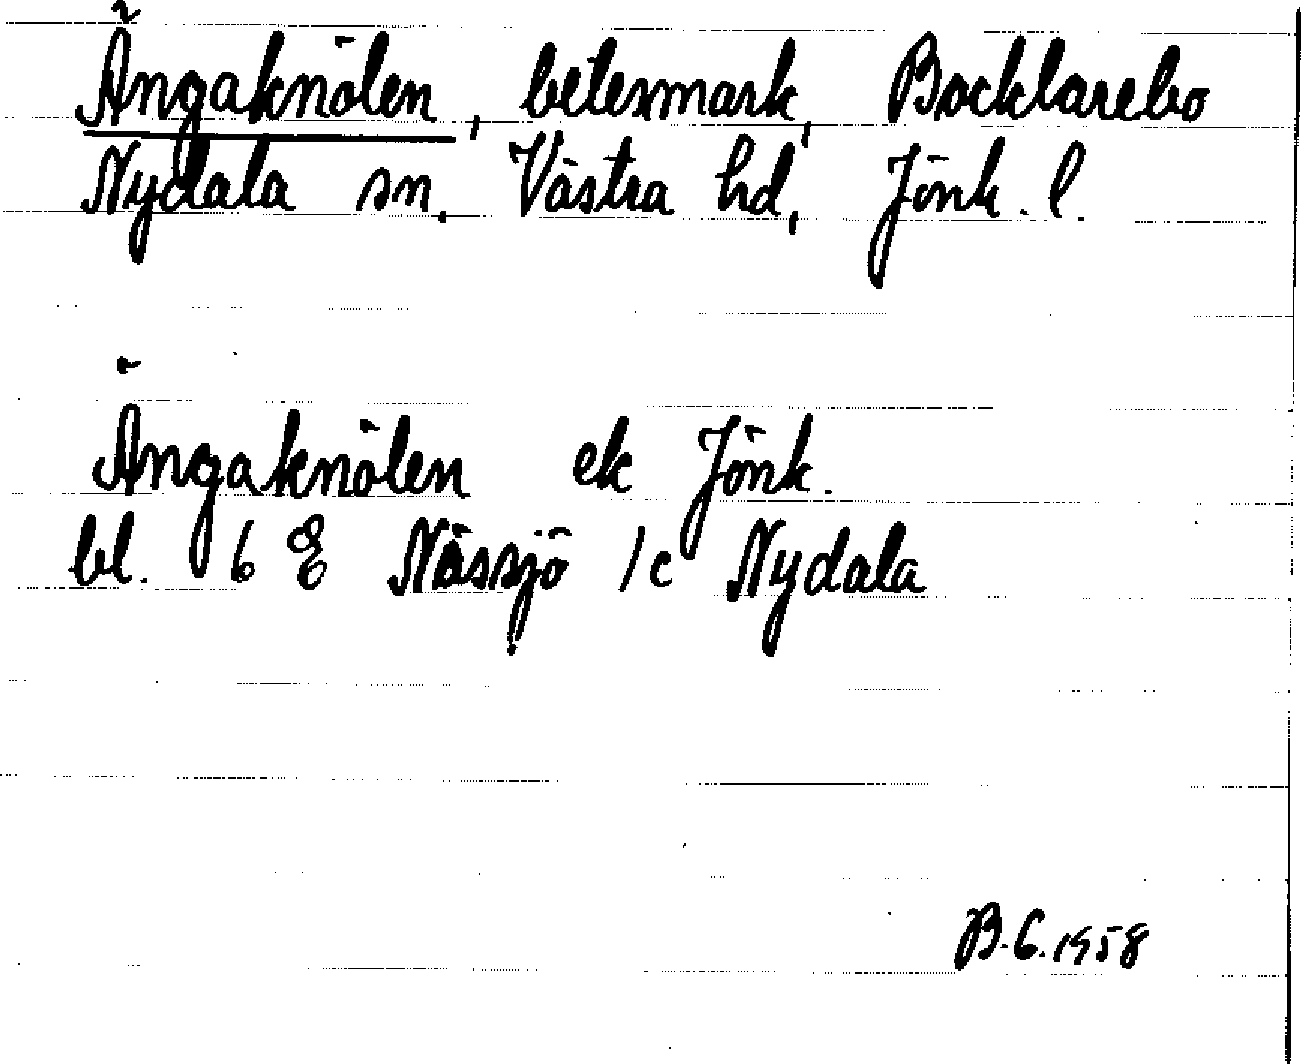 Ängaknölen, betesmark, Bocklarebo
Nydala sn, Västra hd, Jönk. l.
Ängaknölen ek Jönk.
bl. 6 E Nässjö 1c Nydala
B.G. 1958